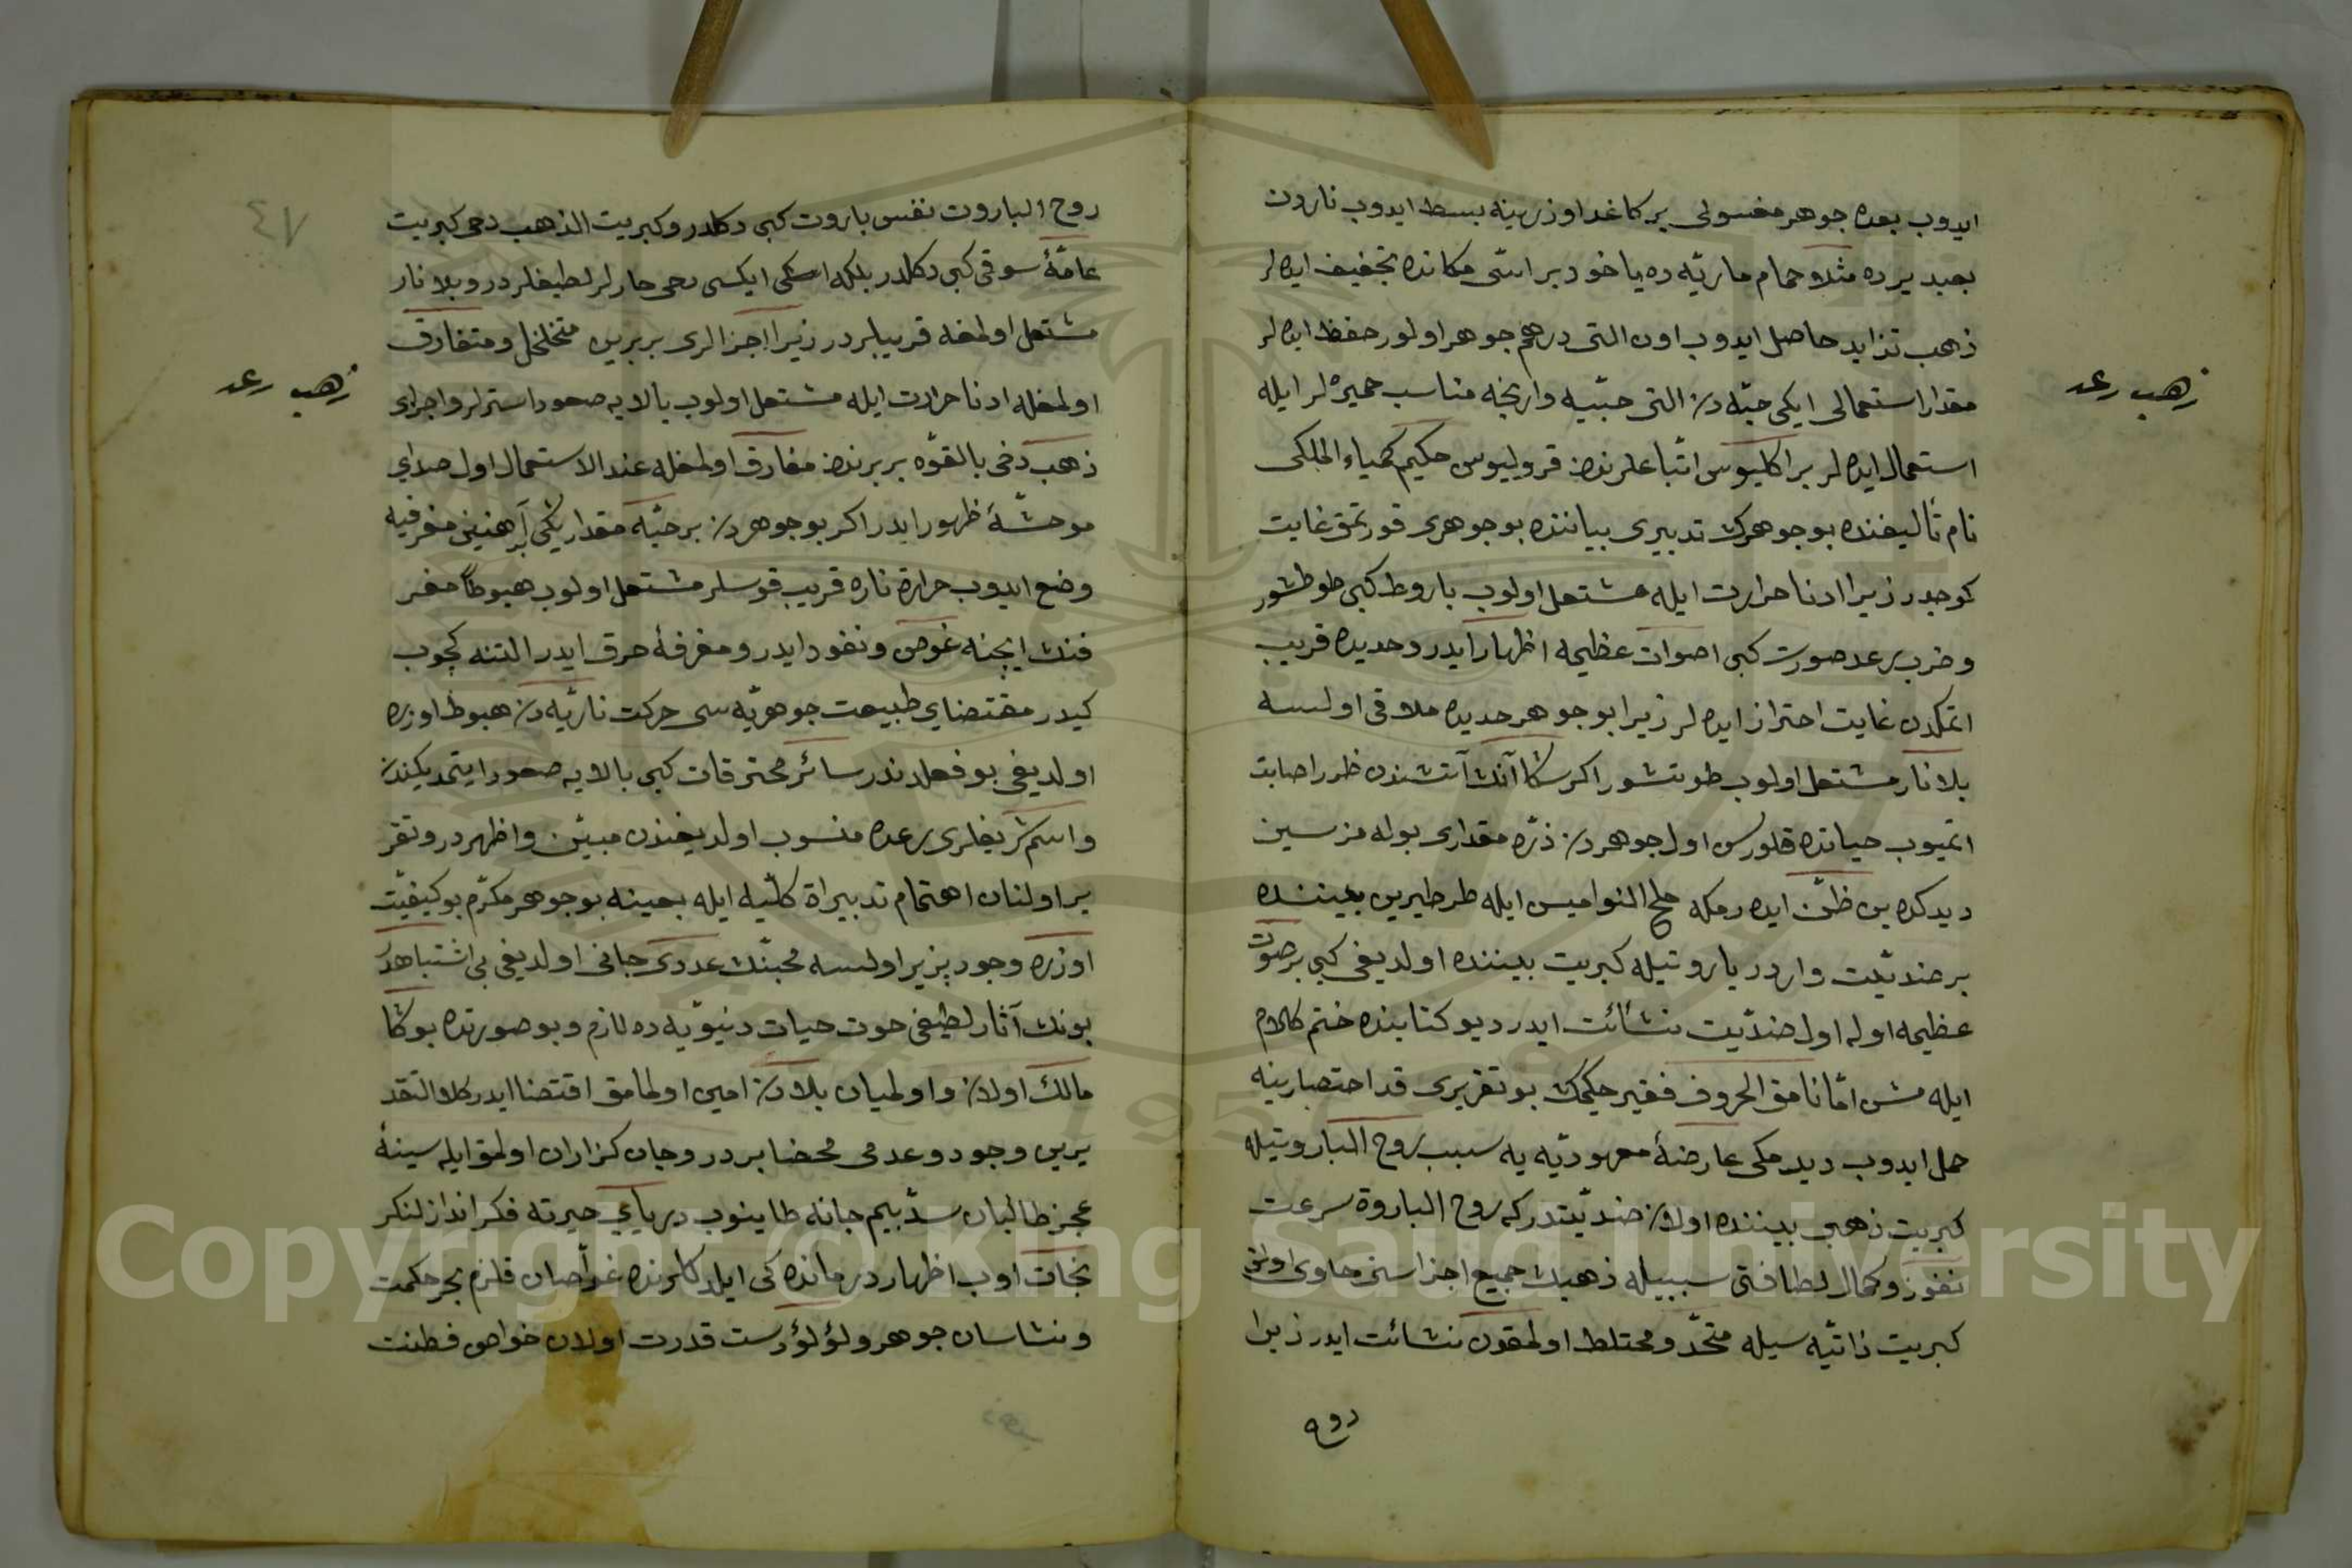 ايدوب بعده جوهر مغسولى بر كاغد اوزرينه بسط ايدوب ناردن
بعيد يرده مثلا حمام ماريّه ده ياخود بر اسّى مكانده تجفيف ايده لر
ذهب تزايد حاصل ايدوب اون التى درهم جوهر اولور حفظ ايده لر
مقدار استعمالى ايكى حبّه دن التى حبّيه وارنجه مناسب خميره لر ايله
استعمال ايده لر براكليوس اتباعلرندن قروليوس حكيم كيمياء الملكى
نام تأليفنده بو جوهرك تدبيرى بياننده بو جوهرى قورتمق غايت
كوجدر زيرا ادنا حرارت ايله مشتعل اولوب باروط كبى طوطشور
و ضرب رعد صورت كبى اصوات عظيمه اظهار ايدر و حديده قريب
اتمكدن غايت احتراز ايده لر زيرا بو جوهر حديده ملاقى اولسه
بلا نار مشتعل اولوب طوتشور اكر سكا آنك آتشندن ضرر اصابت
اتميوب حياتده قلورس اول جوهردن ذرّه مقدارى بوله مزسين
ديدكده بن ظنّ ايده رمكه ملح النواميس ايله طرطيرين بيننده
بر ضديّت واردر باروتيله كبريت بيننده اولديغى كبى بر صوت
عظيمه اوله اول ضدّيت نشأت ايدر ديو كتابنده ختم كلام
ايله مش امّا نامق الحروف فقير حكيمك بو تقريرى قد اختصارينه
حمل ايدوب ديدمكى عارضهٔ معهوديّه يه سبب روح الباروتيله
كبريت ذهبى بيننده اولان ضديّتدر كه روح الباروة سرعت
نفوذ و كمال لطافتى سببيله ذهبك جميع اجزاسنى حاوى اولنى
كبريت ذاتيّه سيله متحدّ و مختلط اولمقدن نشائت ايدر زيرا
روح
ذهب رعد
روح الباروت نفس باروت كبى دكلدر و كبريت الذهب دخى كبريت
عامّهٔ سوقى كبى دكلدر بلكه ايكسى دخى حارلر لطيفلردر و بلا نار
مشتعل اولمغه قريبلردر زيرا اجزالرى بربرين متخلخل و متفارق
اولمغله ادنا حرارت ايله مشتعل اولوب بالايه صعود استرلر و اجزاى
ذهب دخى بالقوّه بربرندن مفارق اولمغله عند الاستعمال اول صداى
موحشهٔ ظهور ايدر اكر بو جوهردن بر حبّه مقدار يكى آهنين مغرفيه
وضع ايدوب حرارة ناره قريب قوسلر مشتعل اولوب هبوطاً مغر
فنك ايچنه غوص و نفود ايدر و مغرفهٔ حرق ايدر التنه كچوب
كيدر مقتضاى طبيعت جوهريّه سى حركت ناريّه دن هبوط اوزره
اولديغى بو فعلدندر سائر محترقات كبى بالايه صعود ايتمديكندن
و اسم شريفلرى رعده منسوب اولديغندن مبيّن و اظهردر و تقر
ير اولنان اهتمام تدبيراة كلّيه ايله بعينه بو جوهر مكرّم بو كيفيّت
اوزره وجود پزير اولسه محبنّك عدوى جانى اولديغى بى اشتباهدر
بونك آثار لطيفى حوت حيات دنيويّه ده لازم و بو صورتده بوكا
مالك اولان و اولميان بلادن امين اولمامق اقتضا ايدر كلا التقد
يرين وجود و عدمى محضا بردر و جان كزاران اولمق ايله سينهٔ
عجز طالبان سدّ بيم جانه طاينوب درياي حيرته فكر انداز لنكر
نجات اوب اظهار درمانده كى ايلدكلرنده غوّاصان قلزم بحر حكمت
و نشاسان جوهر و لؤلؤ دست قدرت اولان خواص فطنت
ذهب رعد
٤٧
Copyright © King Saud University